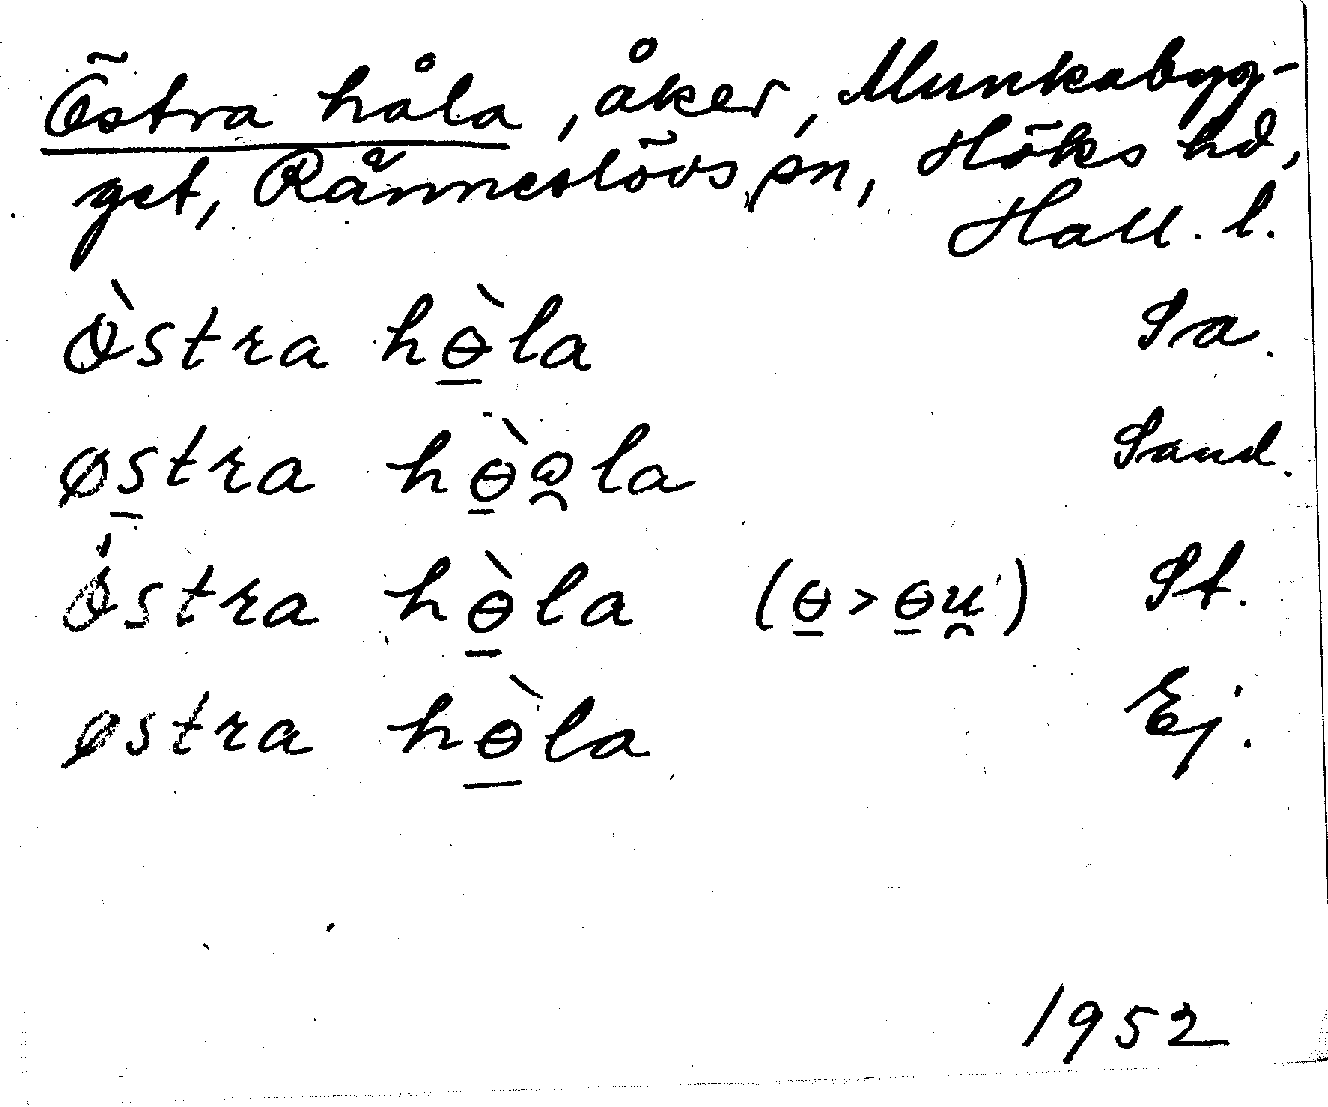 Östra håla, åker, Munkabyg-
get, Ränneslövs sn, Höks hd,
Hall. l.
Östra hɵ̲̀la Sa.
øs̲tra hɵ̲̀ɷ̯la Sand.
Östra hɵ̲̀la (ɵ̲ > ɵ̲u̯) St.
østra hɵ̲̀la Ej.
1952